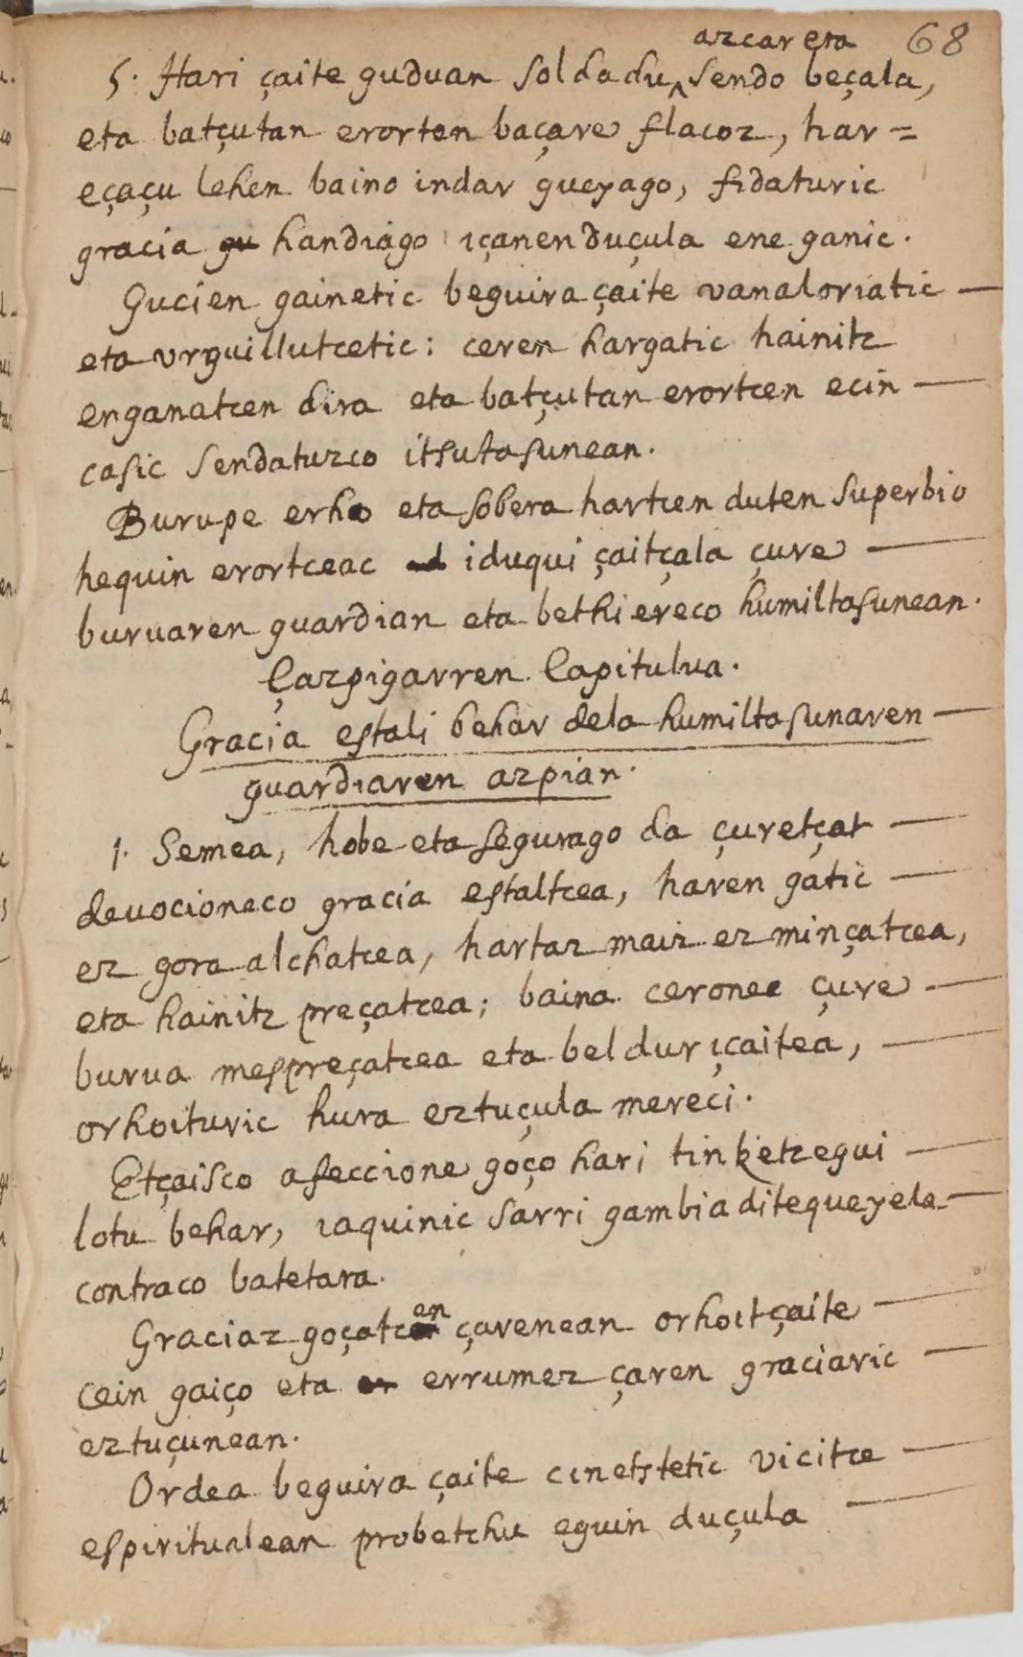 68
azcar eta
5. Hari çaite guduan soldadu^sendo beçala,
eta batçutan erorten baçare flacoz, har=
eçaçu lehen baino indar gueyago, fidaturic
gracia gu handiago içanen duçula ene ganic.
Gucien gainetic beguira çaite vanaloriatic —
eta vrguillutcetic: ceren hargatic hainitz
enganatcen dira eta batçutan erortcen ecin —
casic sendatuzco itsutasunean.
Burupe erho eta sobera hartcen duten superbio
hequin erortceac iduqui çaitçala çure —
buruaren guardian eta bethi ereco humiltasunean.
Çazpigarren Capitulua.
Gracia estali behar dela humiltasunaren —
guardiaren azpian.
1. Semea, hobe eta segurago da çuretçat —
deuocioneco gracia estaltcea, haren gatic —
ez gora alchatcea, hartaz maiz ez minçatcea,
eta hainitz preçatcea; baina ceronec çure —
burua mespreçatcea eta beldur içaitea, —
orhoituric hura eztuçula mereci.
Etçaisco afeccione goço hari tinketzegui —
lotu behar, iaquinic sarri gambia ditequeyela —
contraco batetara.
Graciaz goçatcan çarenean orhoit çaite —
cein gaiço eta errumez çaren graciaric —
eztuçunean.
Ordea beguira çaite cinetstetic vicitce —
espiritualean probetchu eguin duçula —